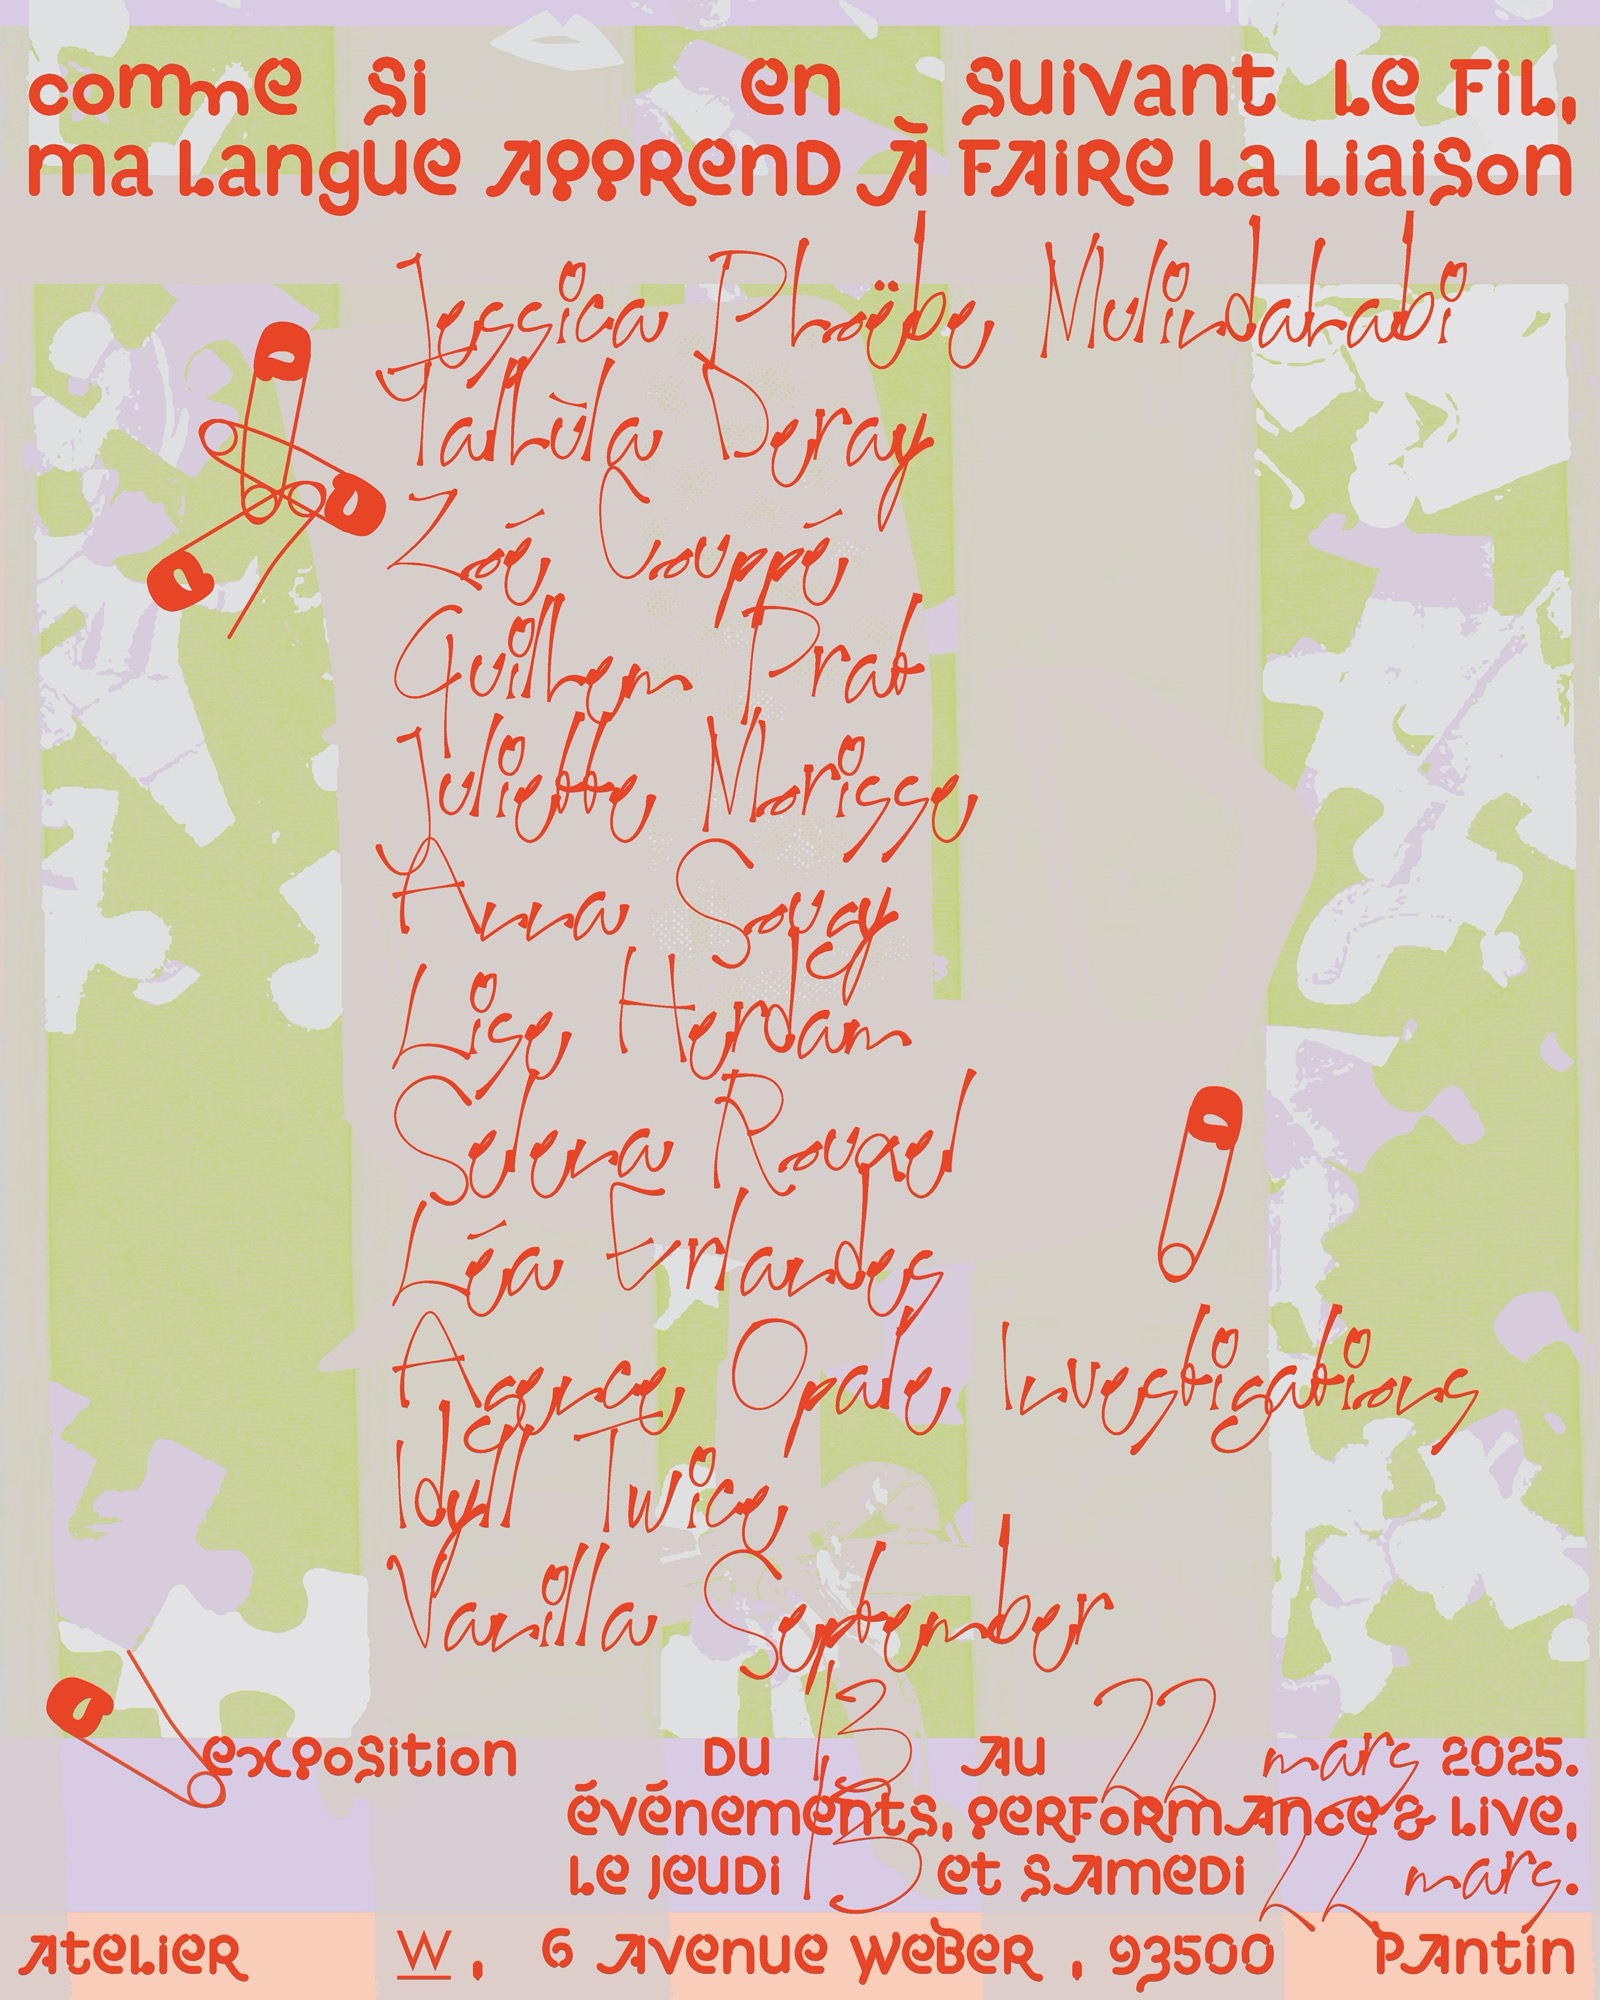 comme si en suivant le fil,
ma langue apprend à faire la liaison
Jessica Phoëbe Mulindahabi
Tallùla Deray
Zoé Couppé
Guilhem Prat
Juliette Morisse
Anna Soucy
Lise Herdam
Selena Rouget
Léa Erlandes
Agence Opale Investigations
Idyll Twice
Vanilla September
exposition du 13 au 22 mars 2025.
événements, performance & live,
le jeudi 13 et samedi 22 mars.
Atelier W, 6 avenue Weber, 93500 Pantin